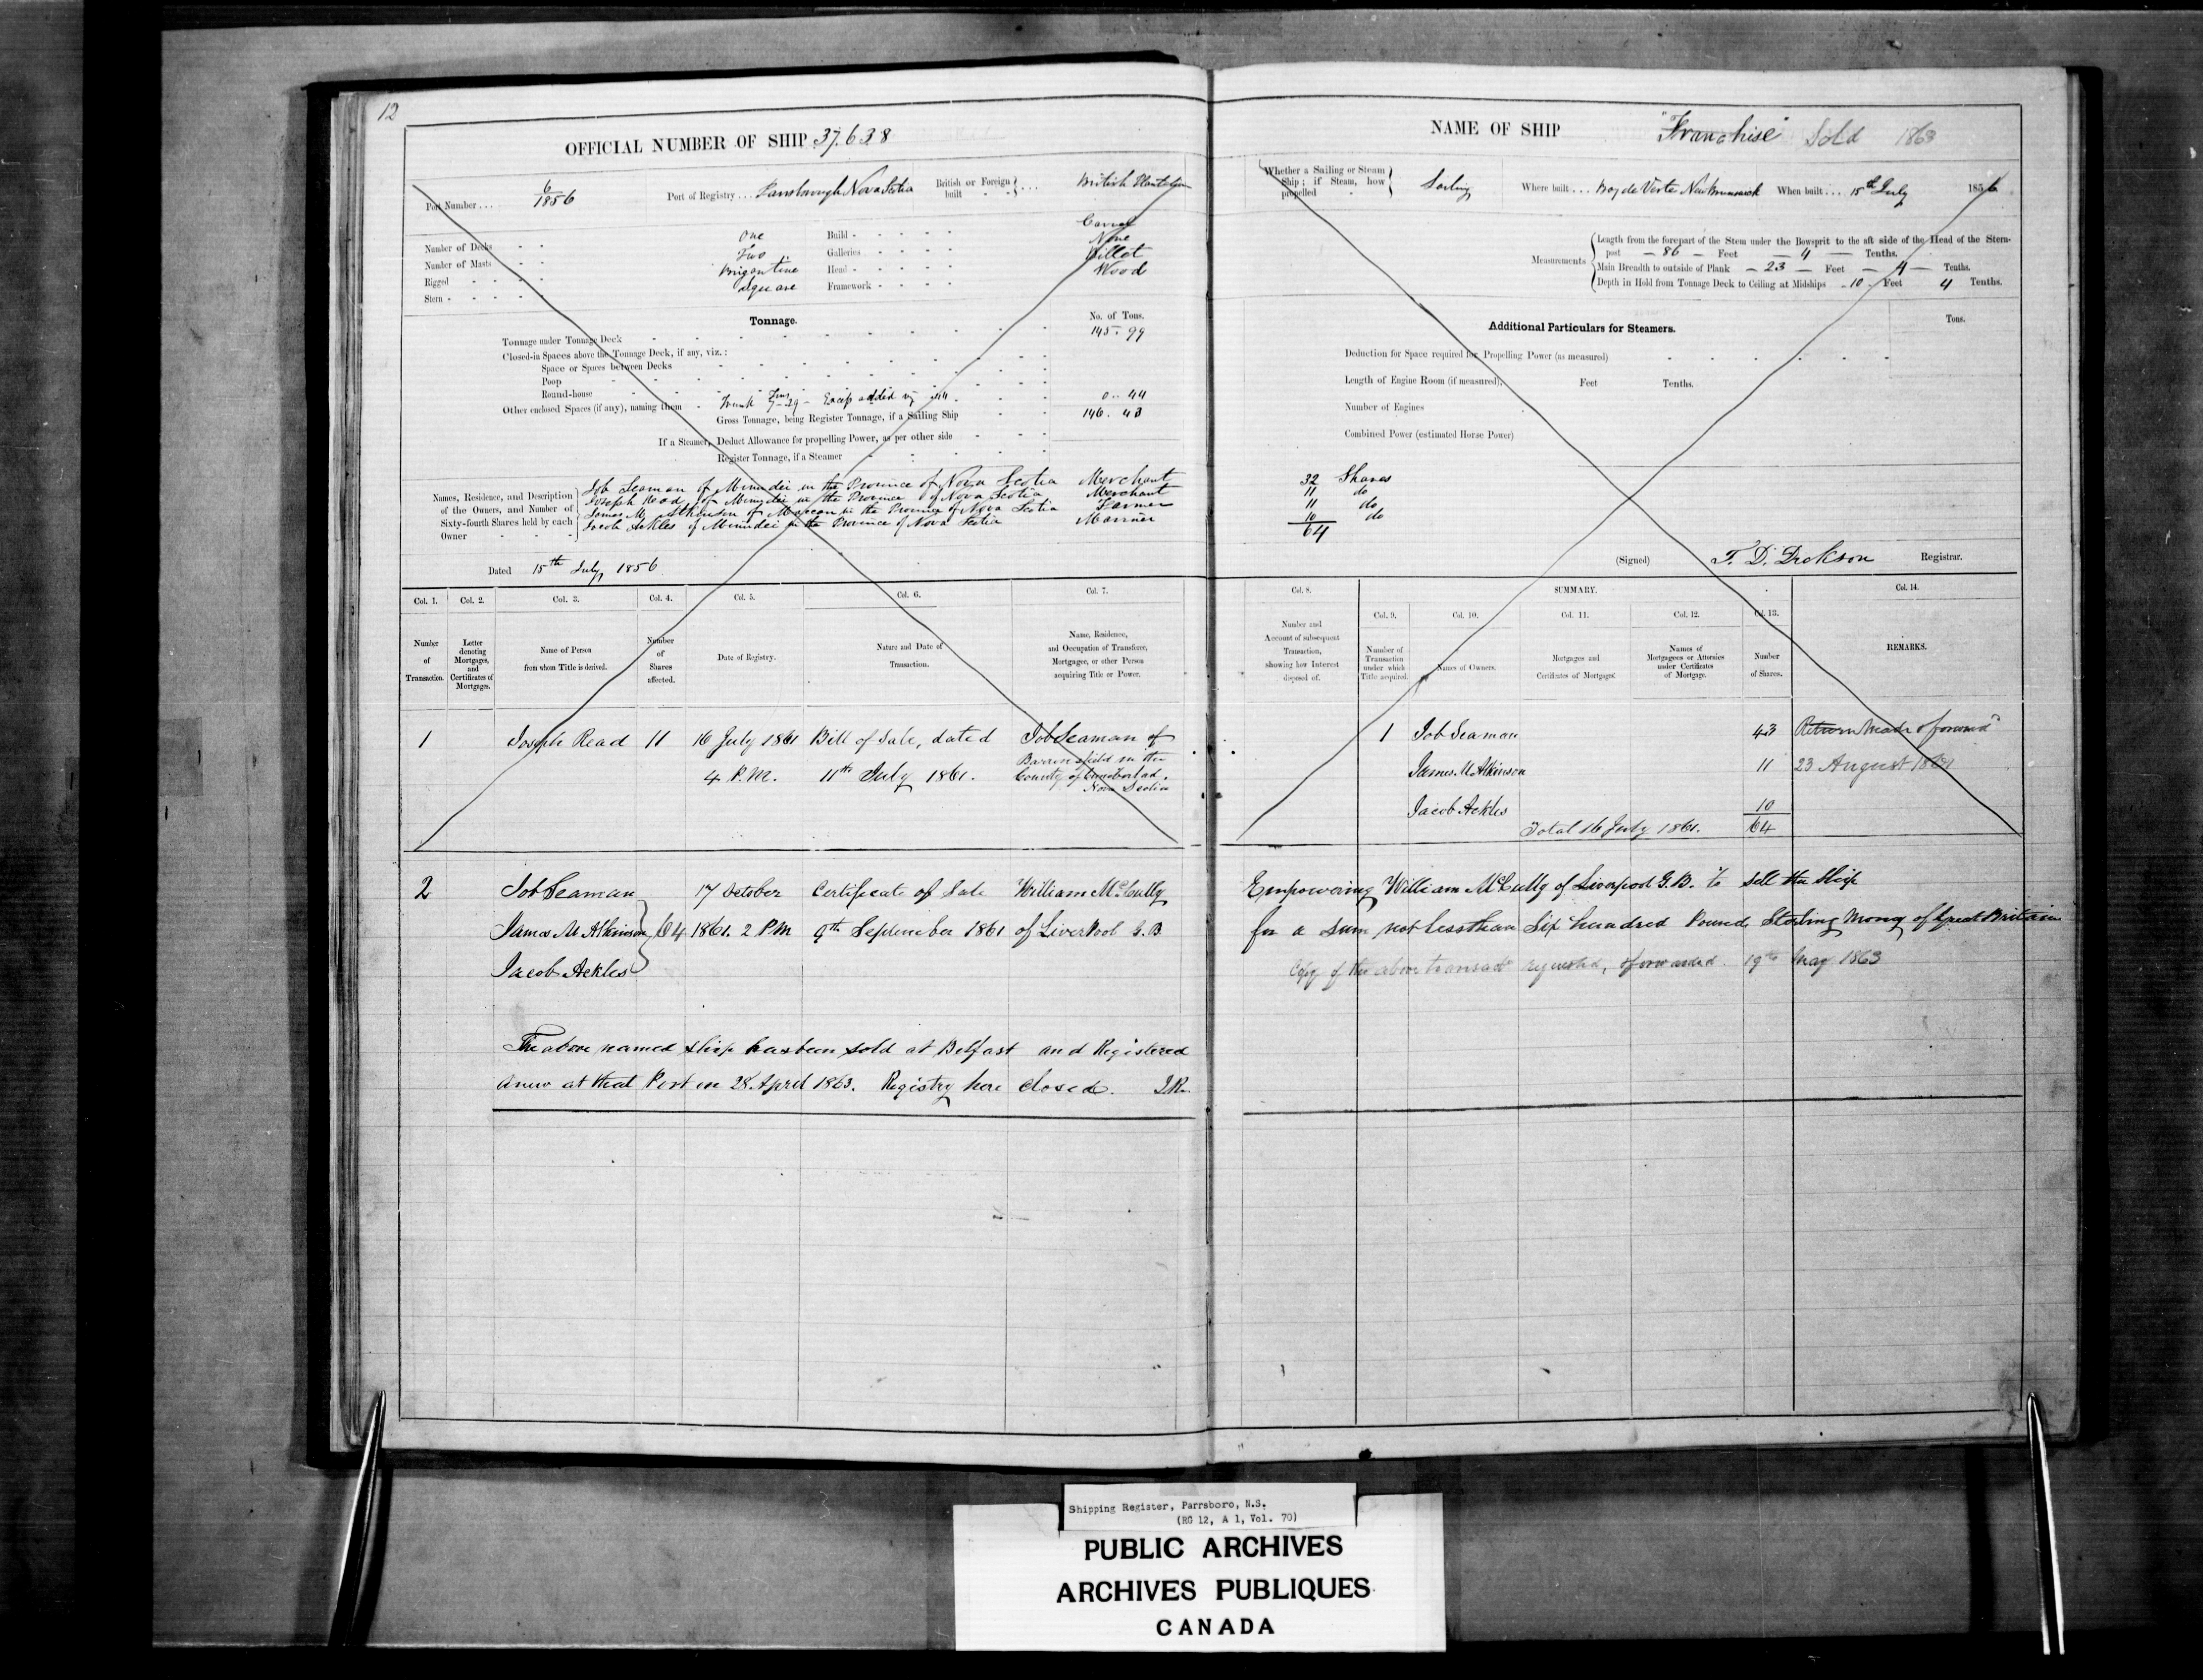 12
OFFICIAL NUMBER OF SHIP 37.638
Port Number . . . 6/1856
Port of Registry . . . Parrsborough Nova Scotia
British or Foreign built } . . . British Plantation
Number of Decks - - One
Number of Masts - - Two
Rigged - - - - Brigantine
Stern - - - - Square
Build - - - - - Carvel
Galleries - - - - None
Head - - - - - Billet
Framework - - - - Wood
Tonnage.
No. of Tons.
Tonnage under Tonnage Deck 145.99
Closed-in Spaces above the Tonnage Deck, if any, viz.:
Space or Spaces between Decks
Poop
Round-house
Other enclosed Spaces (if any), naming them - Trunk Excess added 0..44
Gross Tonnage, being Register Tonnage, if a Sailing Ship 146.43
If a Steamer, Deduct Allowance for propelling Power, as per other side
Register Tonnage, if a Steamer
Names, Residence, and Description of the Owners, and Number of Sixty-fourth Shares held by each Owner
Job Seaman of Minudei in the Province of Nova Scotia Merchant
Joseph Read of Minudei in the Province of Nova Scotia Merchant
James M Atkinson of Maccan in the Province of Nova Scotia Farmer
Jacob Ackles of Minudei in the Province of Nova Scotia Marriner
Dated 15th July 1856
Col. 1. Col. 2. Col. 3. Col. 4. Col. 5. Col. 6. Col. 7.
Number of Transaction.
Letter denoting Mortgages, and Certificates of Mortgages.
Name of Person from whom Title is derived.
Number of Shares affected.
Date of Registry.
Nature and Date of Transaction.
Name, Residence, and Occupation of Transferee, Mortgagee, or other Person acquiring Title or Power.
1 Joseph Read 11 16 July 1861 Bill of Sale, dated Job Seaman of
4 P.M. 11th July 1861. Barronsfield in the
County of Cumberland.
Nova Scotia
2 Job Seaman 17 October Certificate of Sale William McCully
James M Atkinson } 64 1861. 2 PM 9th September 1861 of Liverpool G.B
Jacob Ackles
The above named Ship has been sold at Belfast and Registered
anew at that Port on 28. April 1863. Registry here Closed.
NAME OF SHIP "Franchise" Sold 1863
Whether a Sailing or Steam Ship; if Steam, how propelled - } Sailing
Where built . . . Bay de Verte New Brunswick
When built . . . 15th July 1856
Measurements
Length from the forepart of the Stem under the Bowsprit to the aft side of the Head of the Stern-
post - 86 - Feet - 4 - Tenths.
Main Breadth to outside of Plank - 23 - Feet - 4 - Tenths.
Depth in Hold from Tonnage Deck to Ceiling at Midships - 10 - Feet 4 Tenths.
Additional Particulars for Steamers.
Tons.
Deduction for Space required for Propelling Power (as measured)
Length of Engine Room (if measured), Feet Tenths.
Number of Engines
Combined Power (estimated Horse Power)
32 Shares
11 do
11 do
10 do
64
(Signed) T. D. Dickson Registrar.
Col. 8. SUMMARY. Col. 14.
Col. 9. Col. 10. Col. 11. Col. 12. Col. 13.
Number and Account of subsequent Transaction, showing how Interest disposed of.
Number of Transaction under which Title acquired.
Names of Owners.
Mortgages and Certificates of Mortgages.
Names of Mortgagees or Attornies under Certificates of Mortgage.
Number of Shares.
REMARKS.
1 Job Seaman 43 Return Made & forward
James M Atkinson 11 23 August 1861
Jacob Ackles 10
Total 16 July 1861. 64
Empowering William McCully of Liverpool G.B. to sell the Ship
for a sum not less than Six hundred Pounds, Sterling Money of Great Britain
Copy of the above transact requested, & forwarded. 19th May 1863
Shipping Register, Parrsboro, N.S.
(RG 12, A 1, Vol. 70)
PUBLIC ARCHIVES
ARCHIVES PUBLIQUES
CANADA